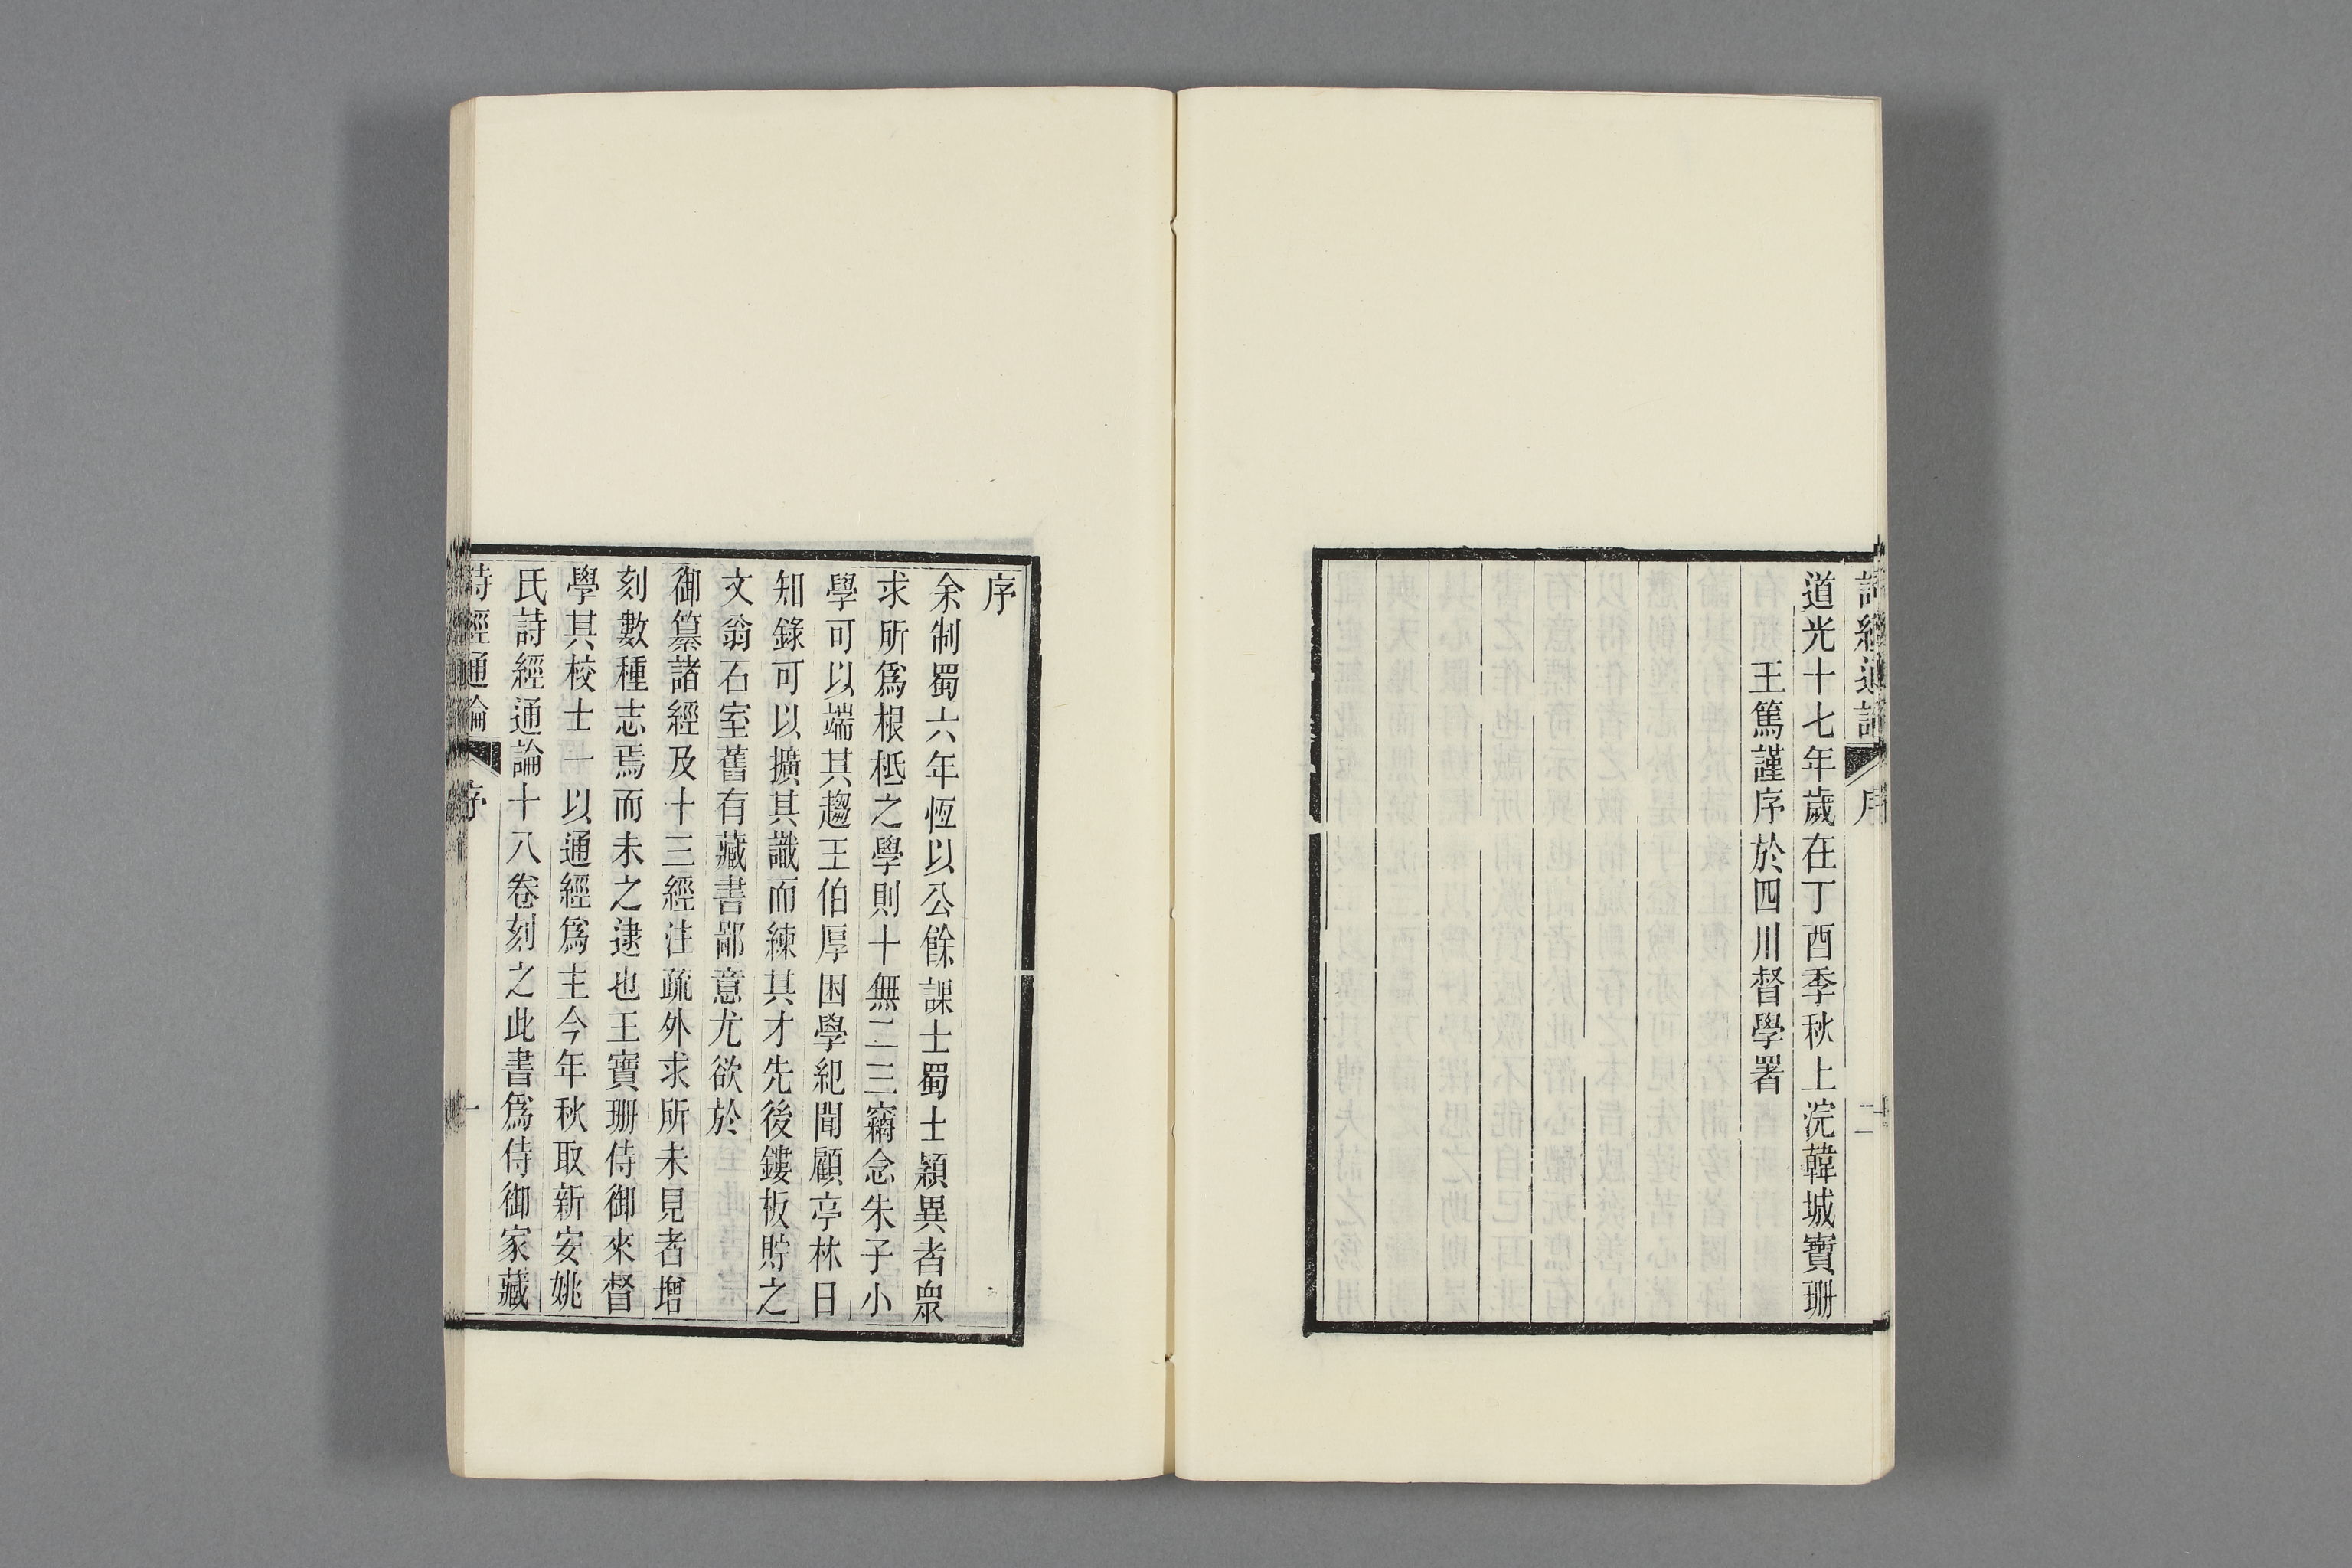 詩經通論 序 二
道光十七年歲在丁酉季秋上浣韓城寶珊
王篤謹序於四川督學署
序
余制蜀六年恆以公餘課士蜀士穎異者衆
求所爲根柢之學則十無二三竊念朱子小
學可以端其趨王伯厚困學紀聞顧亭林日
知錄可以擴其識而練其才先後鏤板貯之
文翁石室舊有藏書鄙意尤欲於
御纂諸經及十三經注疏外求所未見者增
刻數種志焉而未之逮也王寶珊侍御來督
學其校士一以通經爲主今年秋取新安姚
氏詩經通論十八卷刻之此書爲侍御家藏
詩經通論 序 一